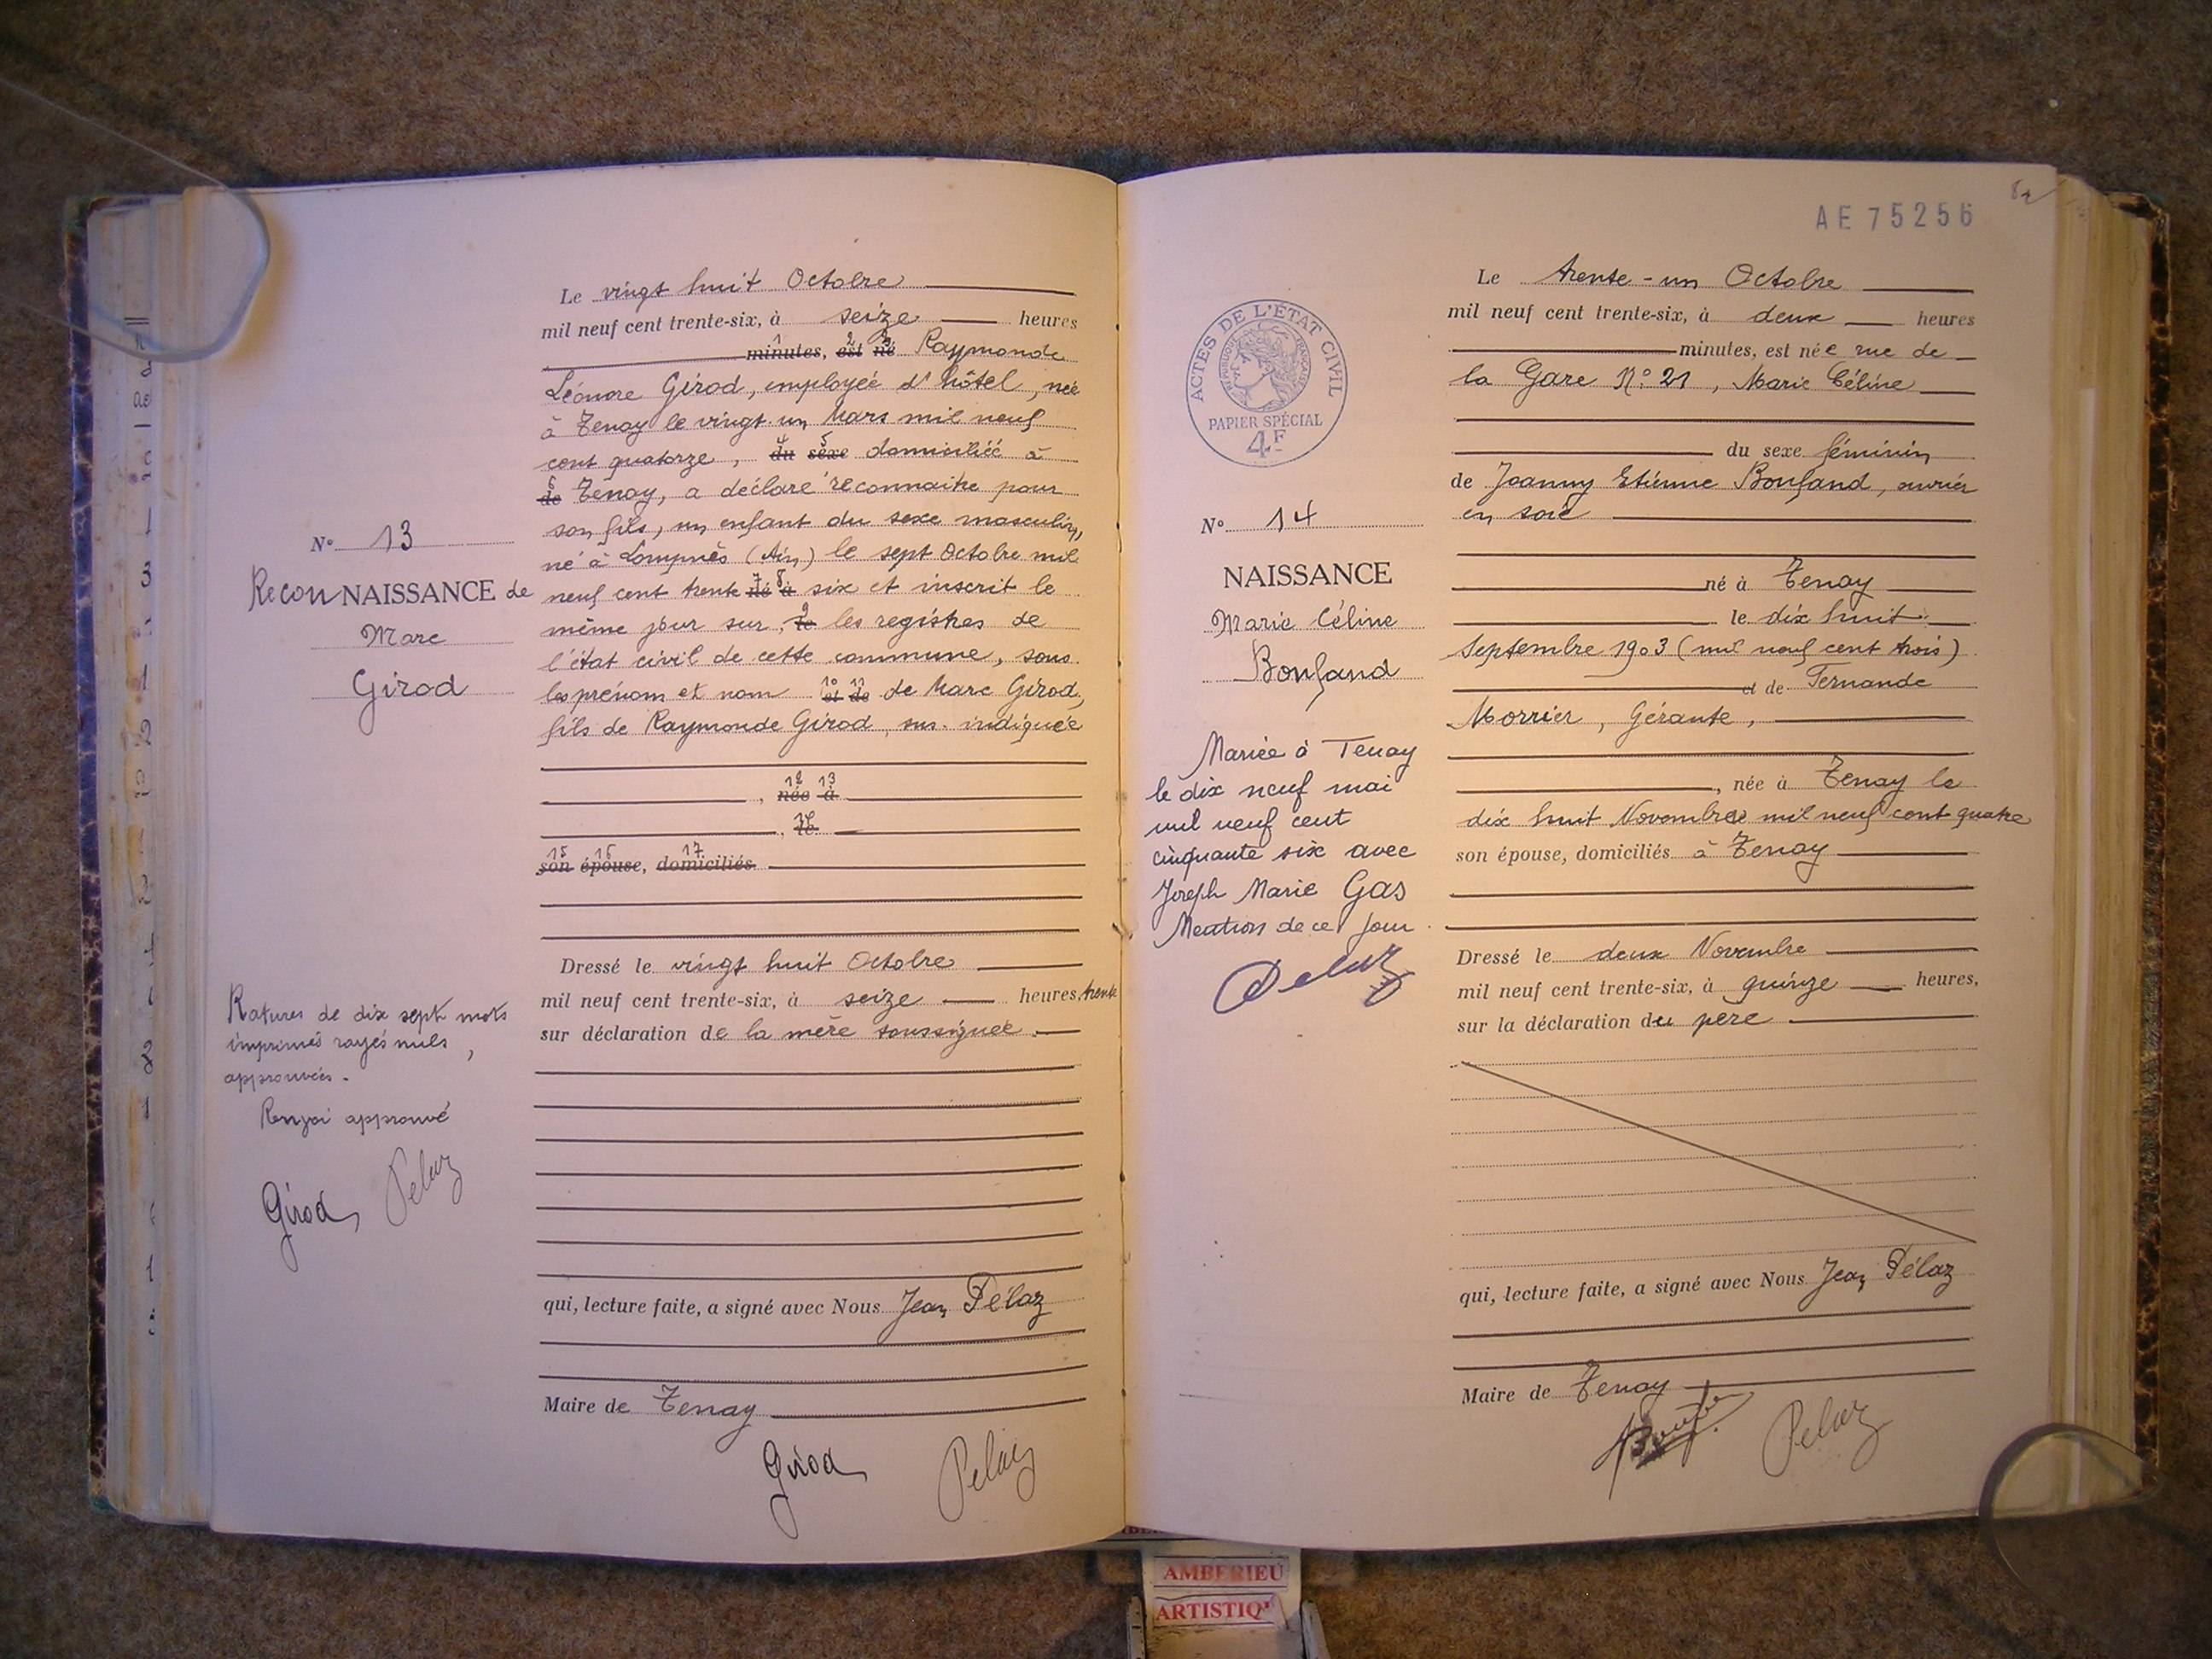 Le vingt huit Octobre
mil neuf cent trente-six, à seize heures
1 2 3
minutes, est né Raymonde
Léonore Girod, employée d'hôtel, née
à Tenay le vingt-un Mars mil neuf
4 5
cent quatorze, du sexe domiciliée à
6
de Tenay, a déclaré reconnaitre pour
son fils, un enfant du sexe masculin,
né à Lompnès (Ain) le sept Octobre mil
7 8
neuf cent trente né à six et inscrit le
9
même jour sur, le les registres de
l'état civil de cette commune, sous
10 11
les prénom et nom et de de Marc Girod,
fils de Raymonde Girod, sus-indiquée
12 13
, née à
14
, le
15 16 17
son épouse, domiciliés
Dressé le vingt huit Octobre
mil neuf cent trente-six, à seize heures, trente
sur déclaration de la mère soussignée
qui, lecture faite, a signé avec Nous Jean Pélaz
Maire de Tenay
Girod Pelaz
N° 13
ReconNAISSANCE de
Marc
Girod
Ratures de dix sept mots
imprimés rayés nuls,
approuvées.
Renvoi approuvé
Girod Pelaz
AE 75256
82
ACTES DE L'ÉTAT CIVIL
RÉPUBLIQUE FRANÇAISE
PAPIER SPÉCIAL
4F
N° 14
NAISSANCE
Marie Céline
Bonfand
Mariée à Tenay
le dix neuf mai
mil neuf cent
cinquante six avec
Joseph Marie Gas
Mention de ce jour
Pelaz
Le trente-un Octobre
mil neuf cent trente-six, à deux heures
minutes, est née rue de
la Gare N° 21, Marie Céline
du sexe féminin
de Joanny Etienne Bonfand, ouvrier
en soie
né à Tenay
le dix huit
Septembre 1903 (mil neuf cent trois)
et de Fernande
Morrier, Gérante,
, née à Tenay le
dix huit Novembre mil neuf cent quatre
son épouse, domiciliés à Tenay
Dressé le deux Novembre
mil neuf cent trente-six, à quinze heures,
sur la déclaration du père
qui, lecture faite, a signé avec Nous Jean Pélaz
Maire de Tenay
Pelaz
AMBERIEU
ARTISTIQ